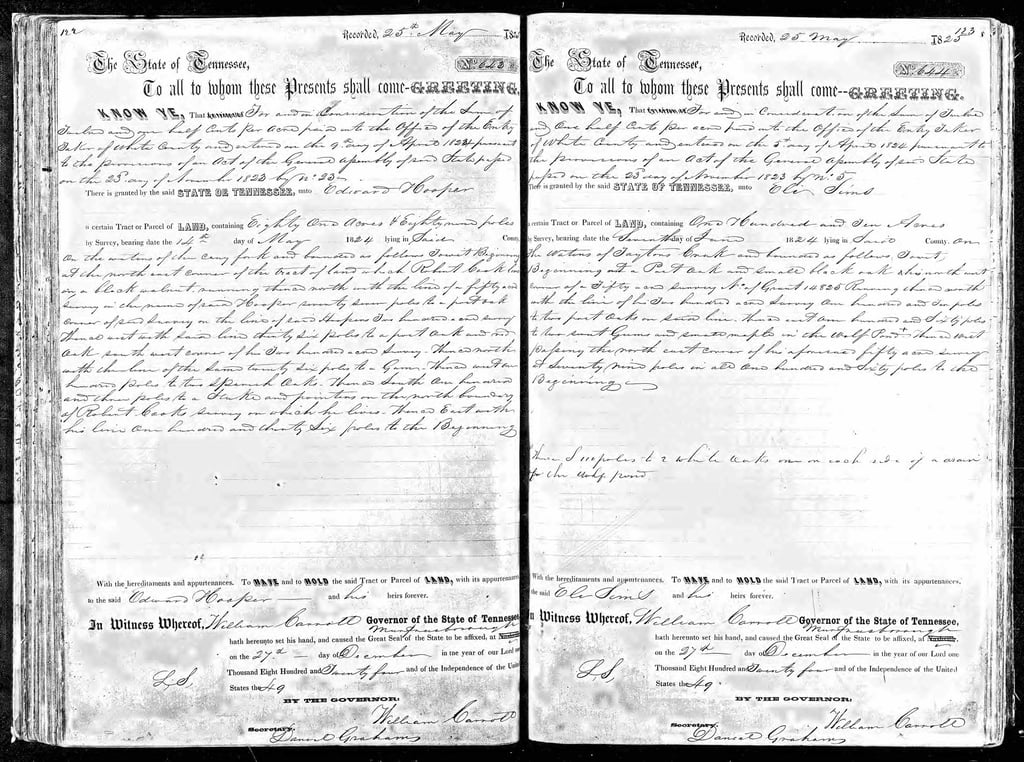 122
Recorded, 25th May 182
The State of Tennessee,
No 643
To all to whom these Presents shall come--GREETING.
KNOW YE, That For and in Consideration of the Sum of
Twelve and one half Cents per Acre paid into the Office of the Entry
Taker of White County and entered on the 9th day of April 1824 pursuant
to the provisions of an Act of the General Assembly of said State passed
on the 22d day of November 1823 by No 23
There is granted by the said STATE OF TENNESSEE, unto Edward Hooper
a certain Tract or Parcel of LAND, containing Eighty One Acres & Eighty nine poles
by Survey, bearing date the 14th day of May 1824 lying in Said County
On the waters of the Caney fork and bounded as follows Towit Beginning
at the north east corner of the tract of land which Robert Cook lives
on a black walnut, running thence north with the line of a fifty acre
Survey in the name of said Hooper seventy seven poles to a post oak
corner of said Survey on the line of said Hoopers Two hundred acre survey
Thence west with said line thirty six poles to a post oak and red
Oak south west corner of the Two hundred acre Survey. Thence north
with the line of the same twenty six poles to a Gum. Thence west one
hundred poles to two Spanish Oaks. Thence South One hundred
and three poles to a Stake and pointers on the north boundary
of Robert Cooks survey on which he lives. Thence East with
his line One hundred and thirty Six poles to the Beginning
With the hereditaments and appurtenances. To HAVE and to HOLD the said Tract or Parcel of LAND, with its appurtenances
to the said Edward Hooper and his heirs forever.
In Witness Whereof, William Carroll Governor of the State of Tennessee,
Murfreesborough
hath hereunto set his hand, and caused the Great Seal of the State to be affixed, at
on the 27th day of December in the year of our Lord one
Thousand Eight Hundred and Twenty four and of the Independence of the United
L.S.
States the 49
BY THE GOVERNOR:
William Carroll
Secretary
Daniel Graham
123
Recorded, 25 May 1825
The State of Tennessee,
No 644
To all to whom these Presents shall come--GREETING.
KNOW YE, That For and in Consideration of the Sum of Twelve
and One half Cents per acre paid into the Office of the Entry Taker
of White County and entered on the 5th day of April 1824 pursuant to
the provisions of an Act of the General Assembly of said State
passed on the 22d day of November 1823 by No 5
There is granted by the said STATE OF TENNESSEE, unto Eli Sims
a certain Tract or Parcel of LAND, containing One Hundred and Ten Acres
by Survey, bearing date the Seventh day of June 1824 lying in Said County. On
the Waters of Taylors Creek and bounded as follows, Towit,
Beginning at a Post Oak and small black oak his north west
corner of a Fifty acre survey No of Grant 14825 Running thence north
with the line of his Two hundred acre Survey One hundred and Ten poles
to two post Oaks on said line, thence east One hundred and Sixty poles
to two sweet Gums and small maple in the Wolf Pond + thence west
Passing the north east corner of his aforesaid fifty acre survey
at Seventy nine poles in all One hundred and sixty poles to the
Beginning
Thence S 110 poles to 2 white oaks one on each side of a drain
to the Wolf pond
With the hereditaments and appurtenances. To HAVE and to HOLD the said Tract or Parcel of LAND, with its appurtenances,
to the said Eli Sims and his heirs forever.
In Witness Whereof, William Carroll Governor of the State of Tennessee,
Murfreesborough
hath hereunto set his hand, and caused the Great Seal of the State to be affixed, at
on the 27th day of December in the year of our Lord one
Thousand Eight Hundred and Twenty four and of the Independence of the United
L.S.
States the 49
BY THE GOVERNOR:
William Carroll
Secretary
Daniel Graham